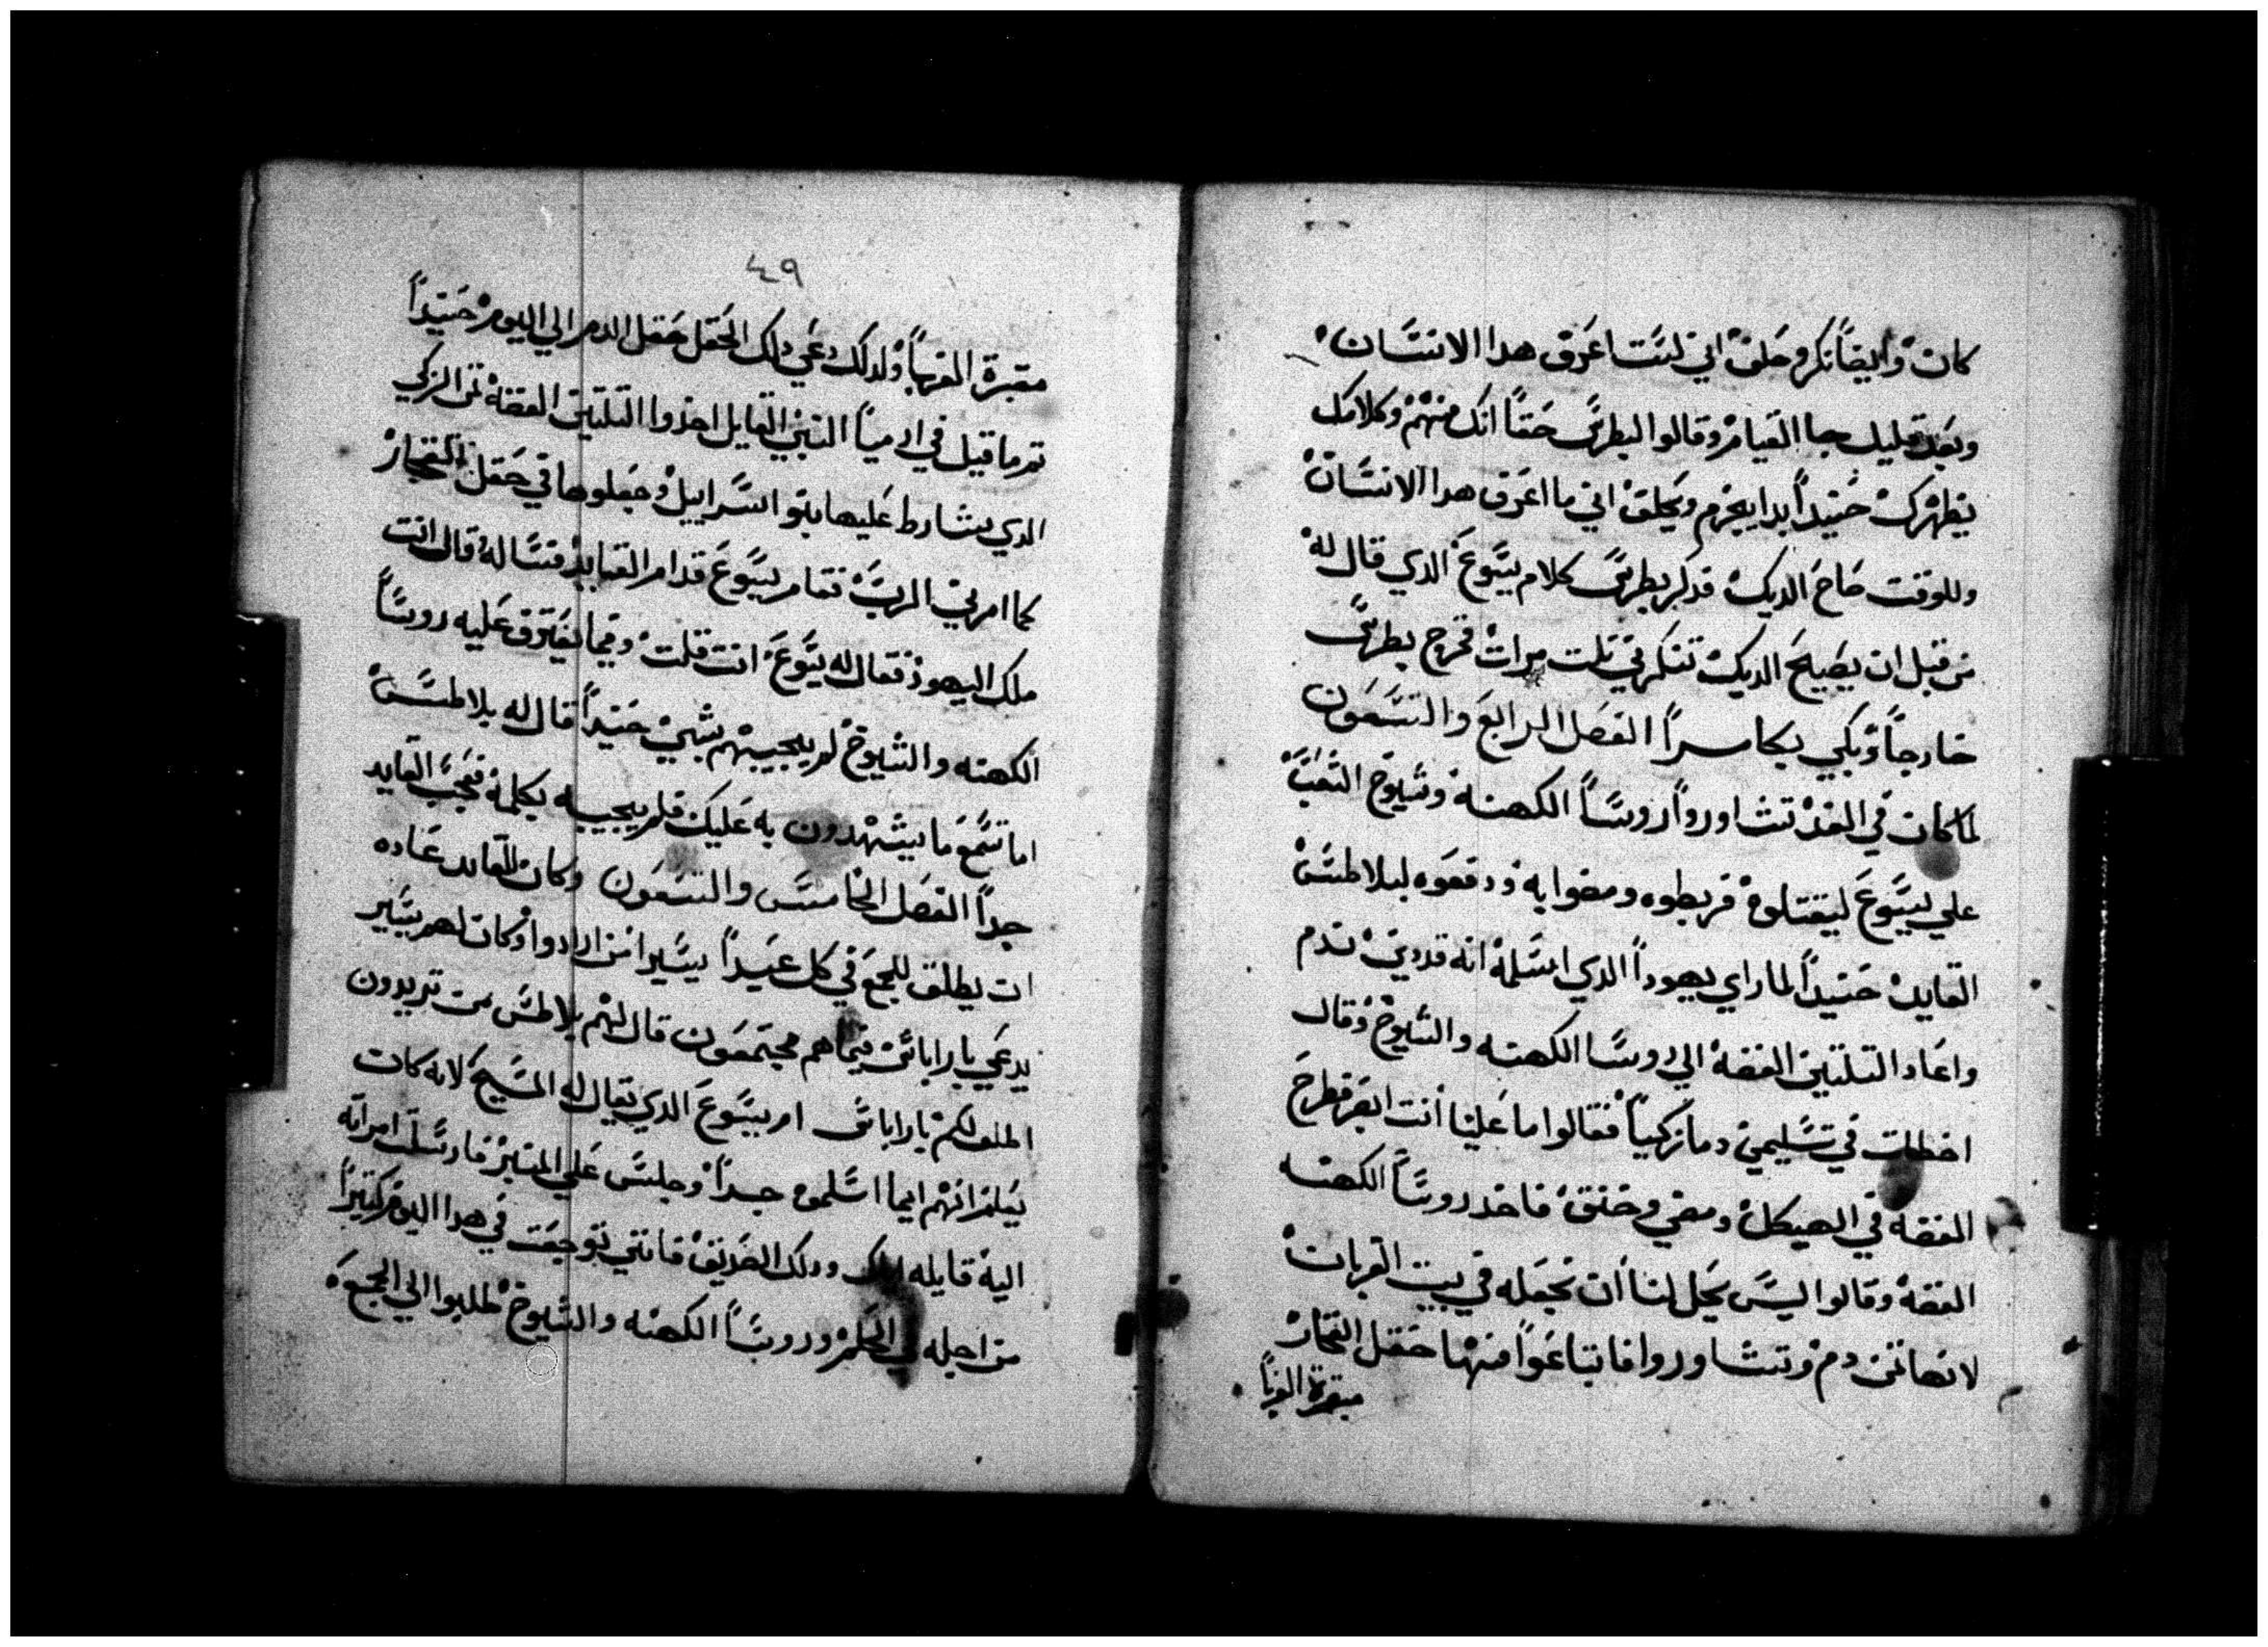 كان وايضاً نكر وحلف اني لست اعرف هدا الانسان
وبعد قليل جا القيام وقالوا لبطرس حقاً انك منهم وكلامك
يظهرك حنيداً بدا يحزم ويحلف اني ما اعرف هدا الانسان
وللوقت صاح الديك فدكر بطرس كلام يسوع الدي قال له
من قبل ان يصيح الديك تنكرني تلت مرات فخرج بطرس
خارجاً وبكي بكا مراً الفصل الرابع والتسعون
لما كان في الغد تشاوروا روسا الكهنه وشيوخ الشعب
علي يسوع ليقتلوه فربطوه ومضوا به ودفعوه لبلاطس
القايد حنيداً لما راي يهودا الدي اسلمه انه قد دين ندم
واعاد التلتين الفضه الي روسا الكهنه والشيوخ وقال
اخطات في تسليمي دماً زكياً فقالوا ما علينا انت ابصر فطرح
الفضه في الهيكل ومضي وخنق فاخد روساً الكهنه
الفضه وقالوا ليس يحل لنا ان نجعله في بيت القربات
لانها تمن دم وتشاوروا فابتاعوا منها حقل الفخار
مقبرة الغربا
٤٩
مقبرة الغربا ولدلك دعي دلك الحقل حقل الدم الي اليوم حنيداً
تم ما قيل في ارميا النبي القايل اخدوا التلتين الفضه تمن الزكي
الدي يشارط عليها بنوا اسراييل وجعلوها في حقل الفخار
كما امرني الرب فقام يسوع قدام القايد فساله قال انت
ملك اليهود فقال له يسوع انت قلت وفيما يفترق عليه روسا
الكهنه والشيوخ لم يجيبهم بشي حنيداً قال له بلاطس
اما تسمع ما يشهدون به عليك فلم يجيبه بكلمة فعجب القايد
جداً الفصل الخامس والتسعون وكان للقايد عاده
ان يطلق للجمع في كل عيداً يسيرا من ارادوا وكان لهم يسير
يدعي بارابان فيما هم مجتمعون قال لهم بلاطس من تريدون
اطلق لكم بارابان ام يسوع الدي يقال له المسيح لانه كان
يعلم انهم ايما اسلموه حسداً وجلس علي المنبر فارسلت امراته
اليه قايله اياك ودلك الصديق فانني توجعت في هدا اليوم كتيراً
من اجله في الحلم وروسا الكهنه والشيوخ طلبوا الي الجمع